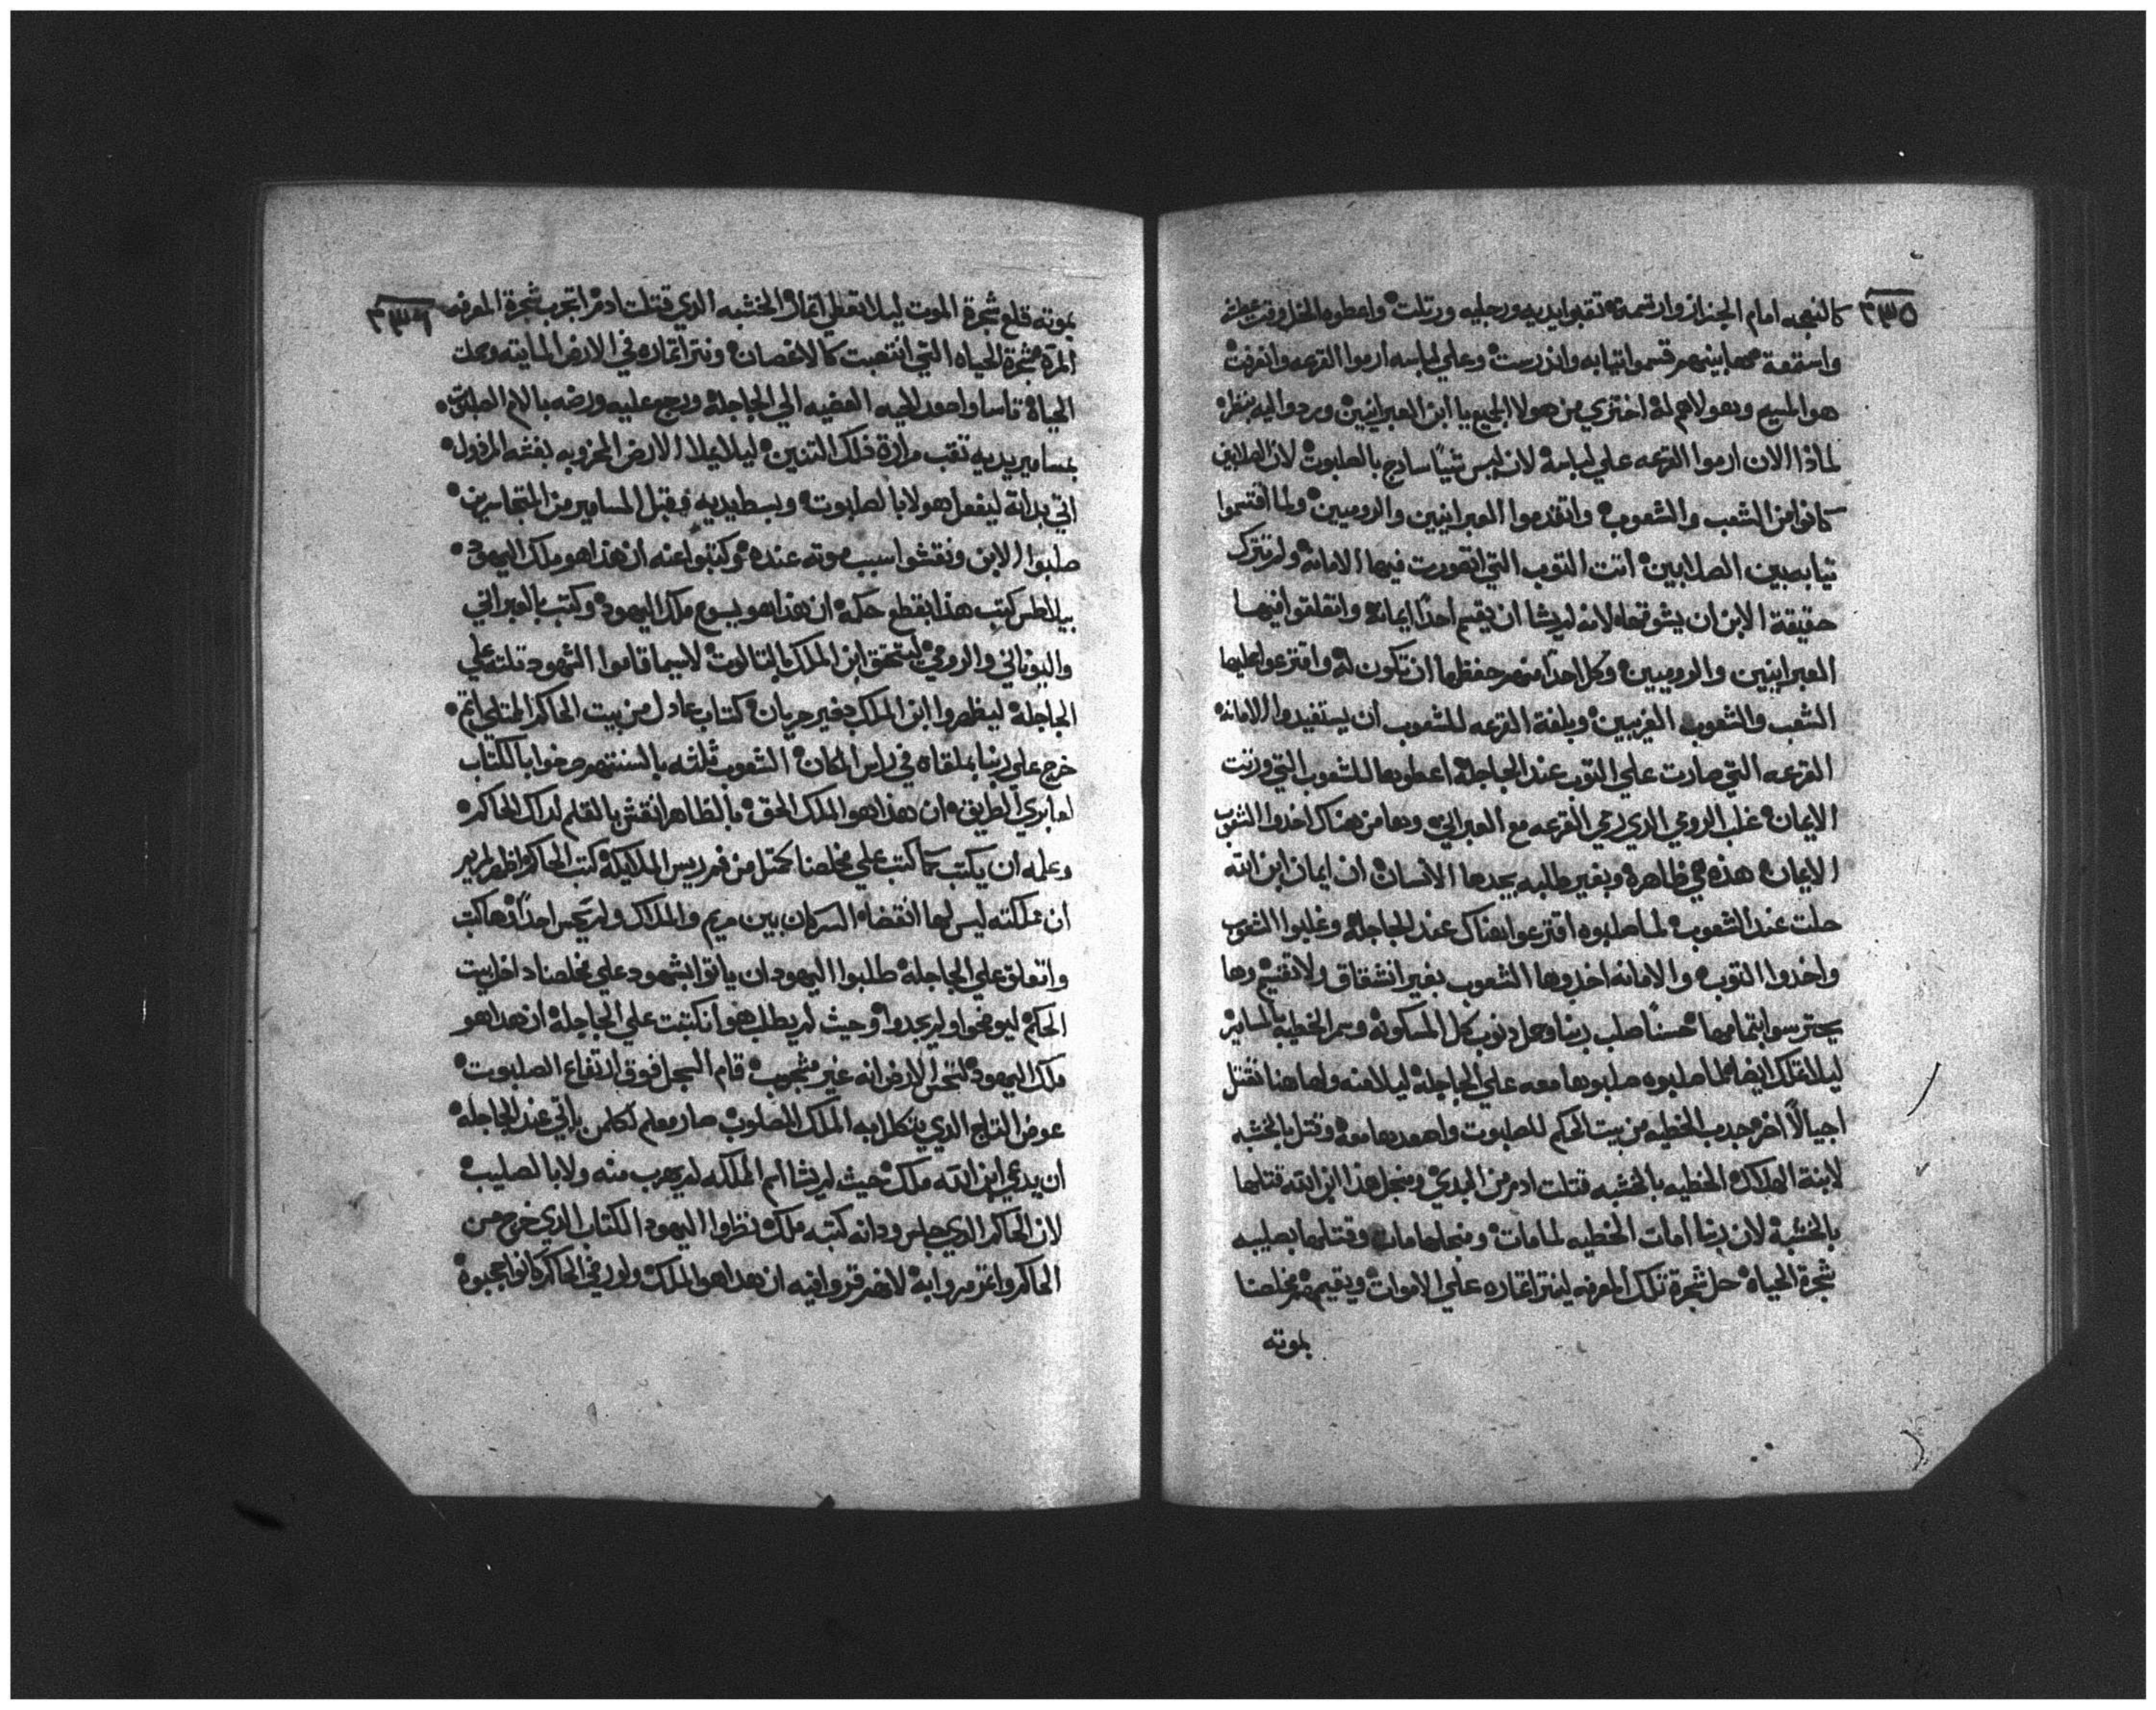 ٣٣٥
كالنعجه امام الجزاز وارتسمة تقبوا يديه ورجليه ورتلت واعطوه الخل وقت عطشه
واستتمعة مهما بينهم قسموا تيابه واندرست وعلي لباسه ارموا القرعه وانعرفت
هو المسيح وهولاهم له اختزي من هولا الجميع يا ابن العبرانيين وردوا اليه بنظره
لماذا الان ارموا القرعه علي لباسه لان ليس شياً سادج بالصلبوت لان الصلابين
كانوا من الشعب والشعوب واتقدموا العبرانيين والروميين ولما اقتسموا
تيابه بين الصلابين اتت التوب التي اتصورت فيها الامانه ولم تترك
حقيقة الابن ان يشوقهاه لانه لم يشا ان يقسم احداً ايمانه واتعلقوا فيها
العبرانيين والروميين وكل احداً منهم حفظها ان تكون له واقترعوا عليها
الشعب والشعوب الغريبين وبلغة القرعه للشعوب ان يستفيدوا الامانه
القرعه التي صارت علي التوب عند الجاجلة اعطوها للشعوب التي ورتت
الايمان غلب الرومي الدي رمي القرعه مع العبراني وها من هناك اخدوا الشعوب
الايمان هذه هي ظاهرة وبغير طلبه يجدها الانسان ان ايمان ابن الله
حلت عند الشعوب لما صلبوه اقترعوا هناك عند الجاجلة وغلبوا الشعوب
واخدوا التوب والامانه اخدوها الشعوب بغير انشقاق ولا تقسيم وها
يحترسوا بتمامها حسناً صلب ربنا وحمل دنوب كل المسكونة وسمر الخطيه بالمسامير
ليلا تملك ايضاً لما صلبوه صلبوها معه علي الجاجلة ليلا منه ولهاهنا تقتل
اجيالاً اخر جدب الخطيه من بيت الحكم للصلبوت واصعدها معه وقتل بالخشبه
لابنة الهلاك الخطيه بالخشبه قتلت ادم من البدي ومنجل هذا ابن الله قتلها
بالخشبة لان ربنا امات الخطيه لما مات ومنجلها مات وقتلها بصليبه
شجرة الحياة حل شجرة تلك المعرفه لينتر اتماره علي الاموات ويقيمهم مخلصنا
بموته
٣٣٦
بموته قلع شجرة الموت ليلا تعطي اتمار الخشبه الدي قتلت ادم اتجرب شجرة المعرفه
المرة شجرة الحياه التي انتصبت كالاغصان ونتر اتماره في الارض المايته
الحياة ناسا واصعد لحيه العصيه الي الجاجلة ورجع عليه ورضه بالام الصلبوت
بمسامير يديه تقب مرارة فلك التنين ليلا يملا الارض المخروبه بغشه المرذول
اتي بداته ليفعل هولا بالصلبوت وبسط يديه وقبل المسامير من المتجاسرين
صلبوا الابن ونقشوا سبب موته عنده وكتبوا عنه ان هذا هو ملك اليهود
بيلاطس كتب هذا بقطع حكمه ان هذا هو يسوع ملك اليهود وكتب بالعبراني
واليوناني والرومي ليتحقق ابن الملك بالتالوت لاسيما قاموا الشهود تلته علي
الجاجلة ليظهروا ابن الملك دفير جريان كتاب عادل من بيت الحاكم الممتلي اتم
خرج علي ربنا بملقاه في راس المكان الشعوب تلته بالسنتهم صرخوا بالكتاب
لعابري الطريق ان هذا هو الملك الحق بالظاهر انقش بالقلم لداك الحاكم
وعلمه ان يكتب كما كتب علي مخلصنا كمتل من فم ريس الملايكة كتب الحاكم واظهر لمريم
ان مملكته ليس لها انقضاه السر كان بين مريم والملاك ولم يحس احداً لهاكت
واتعلق علي الجاجلة طلبوا اليهود ان ياتوا بشهود علي مخلصنا داخل بيت
الحكم ليوضحوا ولم يجدوا وحيث لم يطلب هوا نكتبت علي الجاجلة ان هذا هو
ملك اليهود لتحس الارض انه غير مشجوب قام السجل فوق ارتفاع الصلبوت
عوض التاج الدي يتكلل به الملك المصلوب صار معلم لكلمن ياتي عند الجاجلة
ان يدعي ابن الله ملك حيث لم يشا اسم المملكه لم يهرب منه ولا بالصليب
لان الحاكم الدي جلس ودانه كتبه ملك نظروا اليهود الكتاب الدي خرج من
الحاكم واغتمروا به لانهم قروا فيه ان هذا هو الملك ولوم في الحاكم كانوا عجبوه